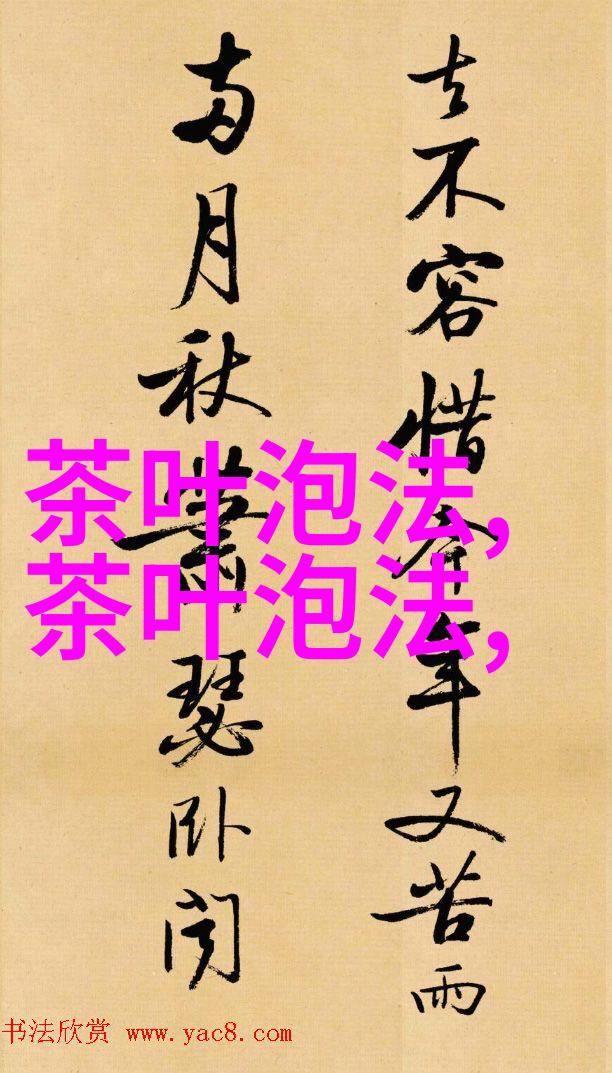 去不容惜今年又苦雨
兩月秋蕭瑟卧聞
茶叶泡法,
茶叶泡法,
书法欣赏 www.yac8.com